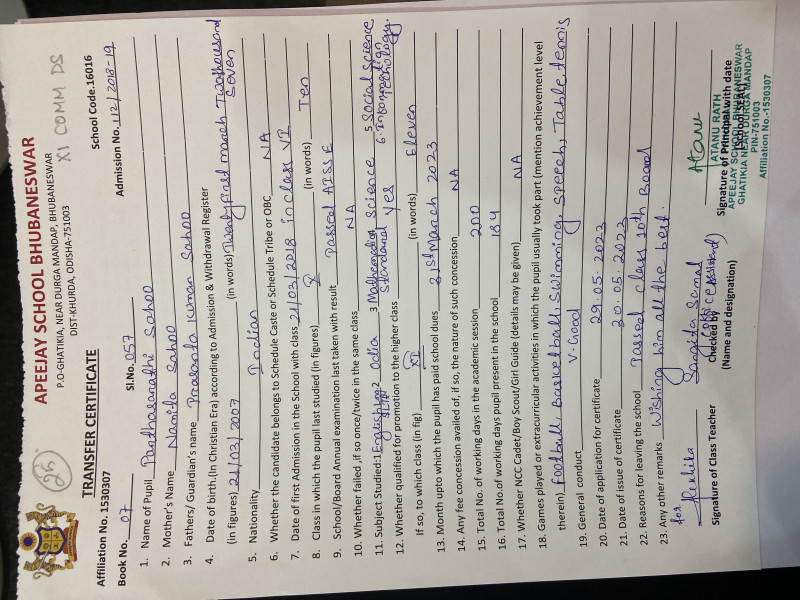 25
APEEJAY SCHOOL BHUBANESWAR
P.O-GHATIKIA, NEAR DURGA MANDAP, BHUBANESWAR
DIST-KHURDA, ODISHA-751003
XI COMM DS
TRANSFER CERTIFICATE
Affiliation No. 1530307 School Code.16016
Book No. 07 Sl.No. 057 Admission No. 112/2018-19
1. Name of Pupil Parthasarathi Sahoo
2. Mother's Name Namita Sahoo
3. Fathers/ Guardian's name Prasanta Kumar Sahoo
4. Date of birth,(In Christian Era) according to Admission & Withdrawal Register
(in figures) 21/03/2007 (in words) Twenty first march Twothousand Seven
5. Nationality Indian
6. Whether the candidate belongs to Schedule Caste or Schedule Tribe or OBC NA
7. Date of first Admission in the School with class 21/03/2018 in class VI
8. Class in which the pupil last studied (in figures) X (in words) Ten
9. School/Board Annual examination last taken with result Passed AISSE
10. Whether failed ,if so once/twice in the same class NA
11. Subject Studied: 1 English 2 Odia 3 Mathematics Standard 4 Science 5 Social Science 6. Information Technology.
12. Whether qualified for promotion to the higher class Yes
If so, to which class (in fig) XI (in words) Eleven
13. Month upto which the pupil has paid school dues 31st March 2023
14. Any fee concession availed of, if so, the nature of such concession NA
15. Total No. of working days in the academic session 200
16. Total No.of working days pupil present in the school 184
17. Whether NCC Cadet/Boy Scout/Girl Guide (details may be given) NA
18. Games played or extracurricular activities in which the pupil usually took part (mention achievement level
therein) Football, Basketball, Swimming, Speech, Table tennis
19. General conduct V. Good
20. Date of application for certificate 29.05.2023
21. Date of Issue of certificate 30.05.2023
22. Reasons for leaving the school Passed class 10th Board
23. Any other remarks Wishing him all the best.
for Rekhika
Signature of Class Teacher
Sangita Samal
(Office Assistant)
Checked by
(Name and designation)
Atanu
ATANU RATH
Signature of Principal with date
(School SEAL)
APEEJAY SCHOOL BHUBANESWAR
GHATIKIA NEAR DURGA MANDAP
PIN-751003
Affiliation No.-1530307